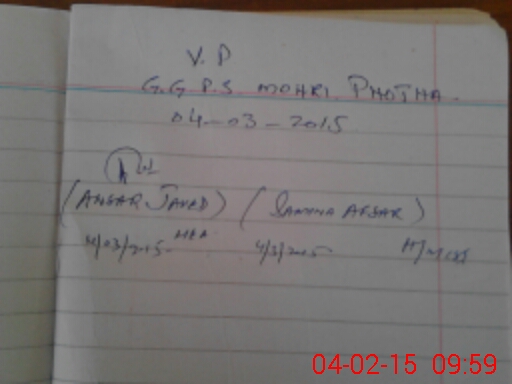 V.P
G.G.P.S MOHRI PHOTHA.
04-03-2015.
(ANSAR JAVED) (SAMINA AFSAR)
4/03/2015 MEA 4/3/2015
04-02-15 09:59